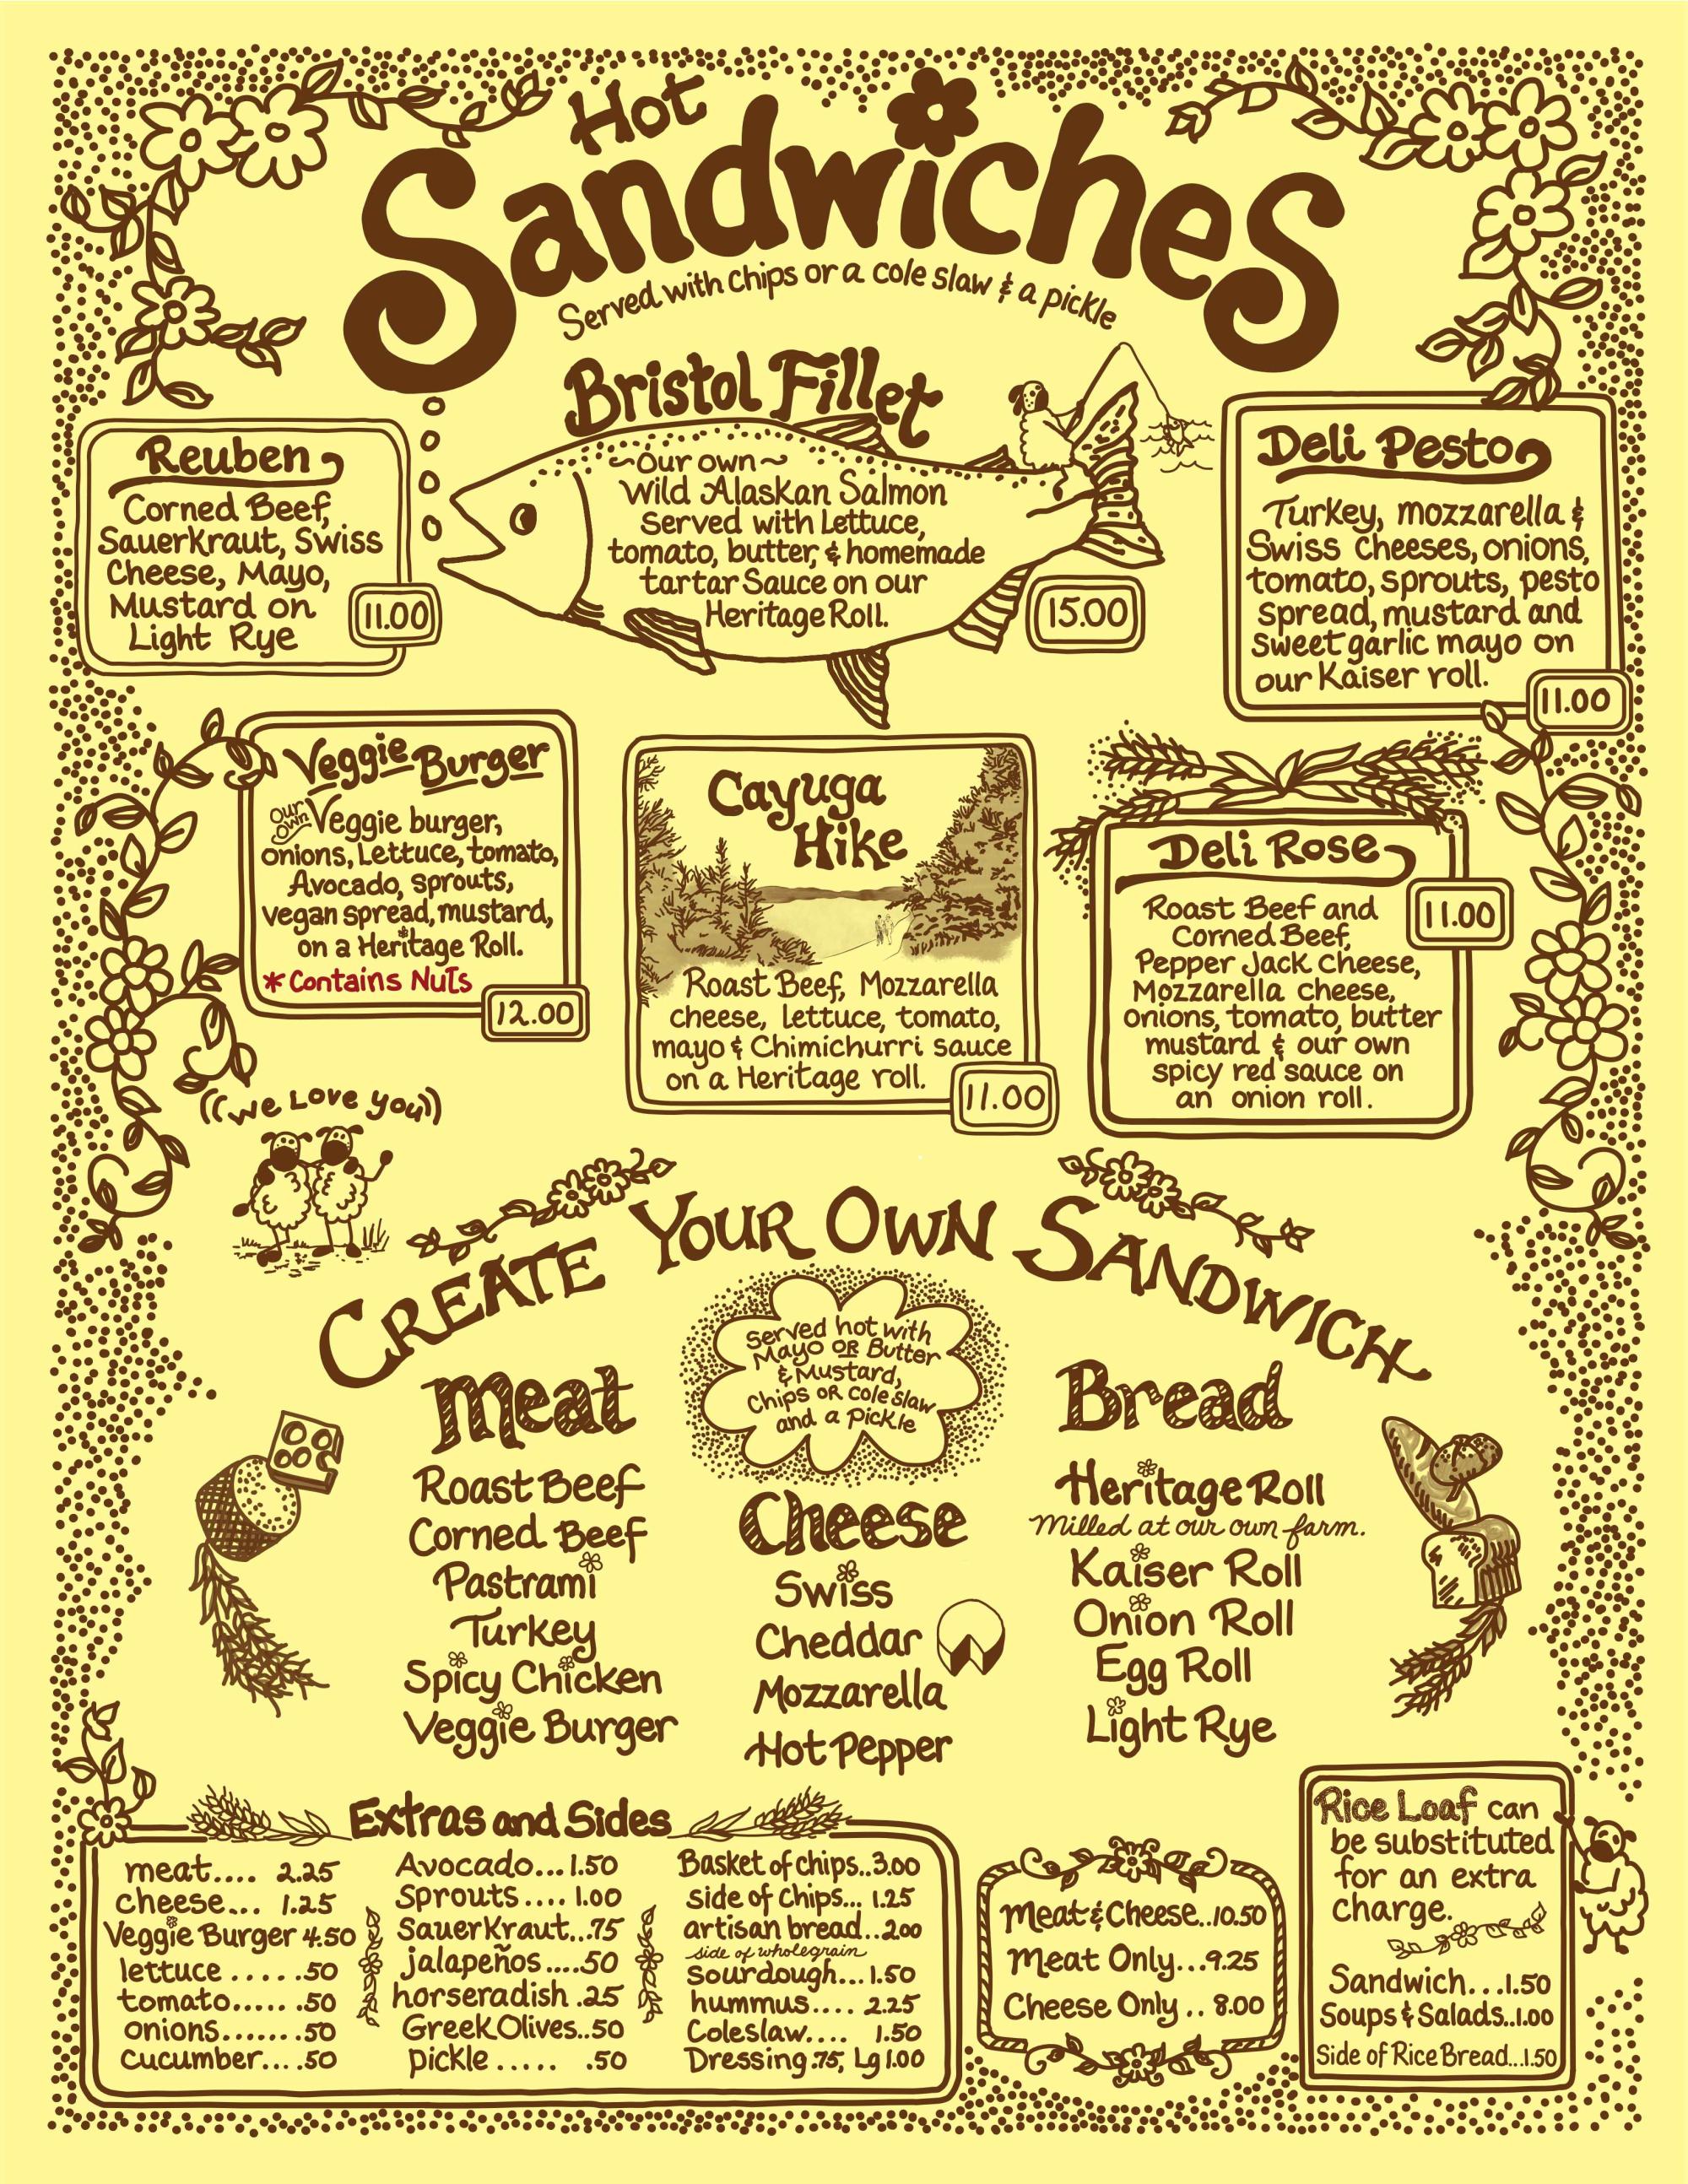 Hot
Sandwiches
Served with chips or a cole slaw & a pickle
Reuben
Corned Beef,
Sauerkraut, Swiss
Cheese, Mayo,
Mustard on
Light Rye
11.00
Bristol Fillet
~Our own~
Wild Alaskan Salmon
Served with Lettuce,
tomato, butter, & homemade
tartar Sauce on our
Heritage Roll.
15.00
Deli Pesto
Turkey, mozzarella &
Swiss Cheeses, onions,
tomato, sprouts, pesto
spread, mustard and
sweet garlic mayo on
our Kaiser roll.
11.00
Veggie Burger
Our Own Veggie burger,
onions, Lettuce, tomato,
Avocado, sprouts,
vegan spread, mustard,
on a Heritage Roll.
* Contains Nuts
12.00
Cayuga
Hike
Roast Beef, Mozzarella
cheese, lettuce, tomato,
mayo & Chimichurri sauce
on a Heritage roll.
11.00
Deli Rose
Roast Beef and
Corned Beef,
Pepper Jack Cheese,
Mozzarella cheese,
onions, tomato, butter
mustard & our own
spicy red sauce on
an onion roll.
11.00
((We Love you))
CREATE YOUR OWN SANDWICH
Served hot with
Mayo OR Butter
& Mustard,
Chips OR Coleslaw
and a Pickle
Meat
Roast Beef
Corned Beef
Pastrami
Turkey
Spicy Chicken
Veggie Burger
Cheese
Swiss
Cheddar
Mozzarella
Hot Pepper
Bread
Heritage Roll
Milled at our own farm.
Kaiser Roll
Onion Roll
Egg Roll
Light Rye
Extras and Sides
meat.... 2.25
cheese... 1.25
Veggie Burger 4.50
lettuce ......50
tomato...... .50
onions........50
cucumber.....50
Avocado...1.50
Sprouts.... 1.00
Sauerkraut...75
jalapeños.....50
horseradish .25
Greek Olives..50
pickle ..... .50
Basket of chips..3.00
side of chips... 1.25
artisan bread..2.00
side of wholegrain
sourdough...1.50
hummus.... 2.25
Coleslaw.... 1.50
Dressing .75, Lg 1.00
Meat & Cheese..10.50
Meat Only...9.25
Cheese Only .. 8.00
Rice Loaf can
be substituted
for an extra
charge.
Sandwich...1.50
Soups & Salads..1.00
Side of Rice Bread...1.50